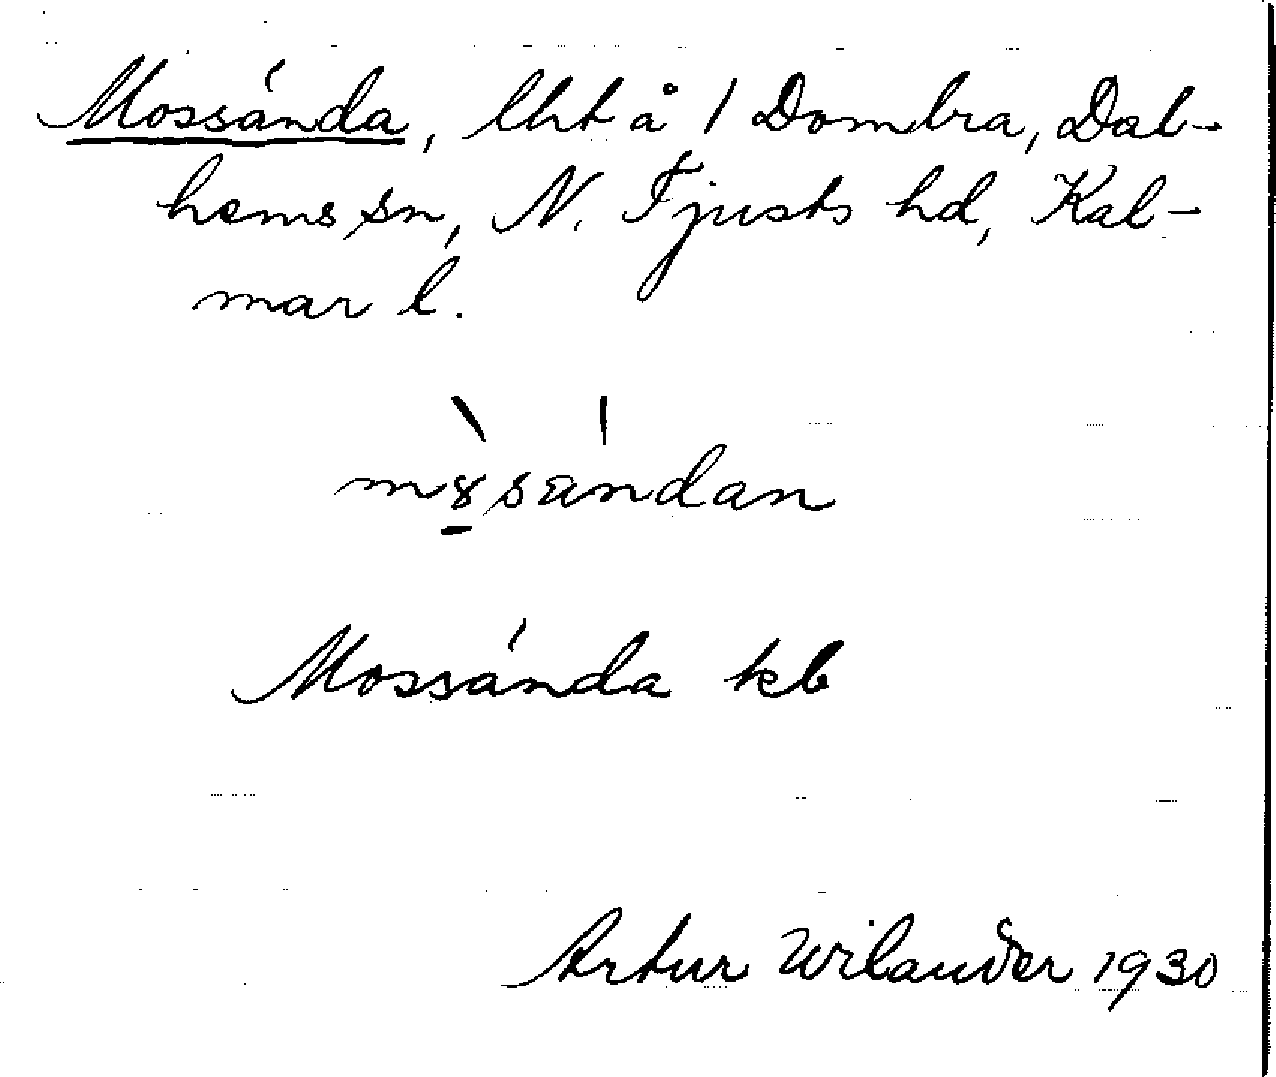 Mossánda, lht å 1 Dombra, Dal-
hems sn, N. Tjusts hd, Kal-
mar l.
Mossánda kb
Artur Wilander 1930